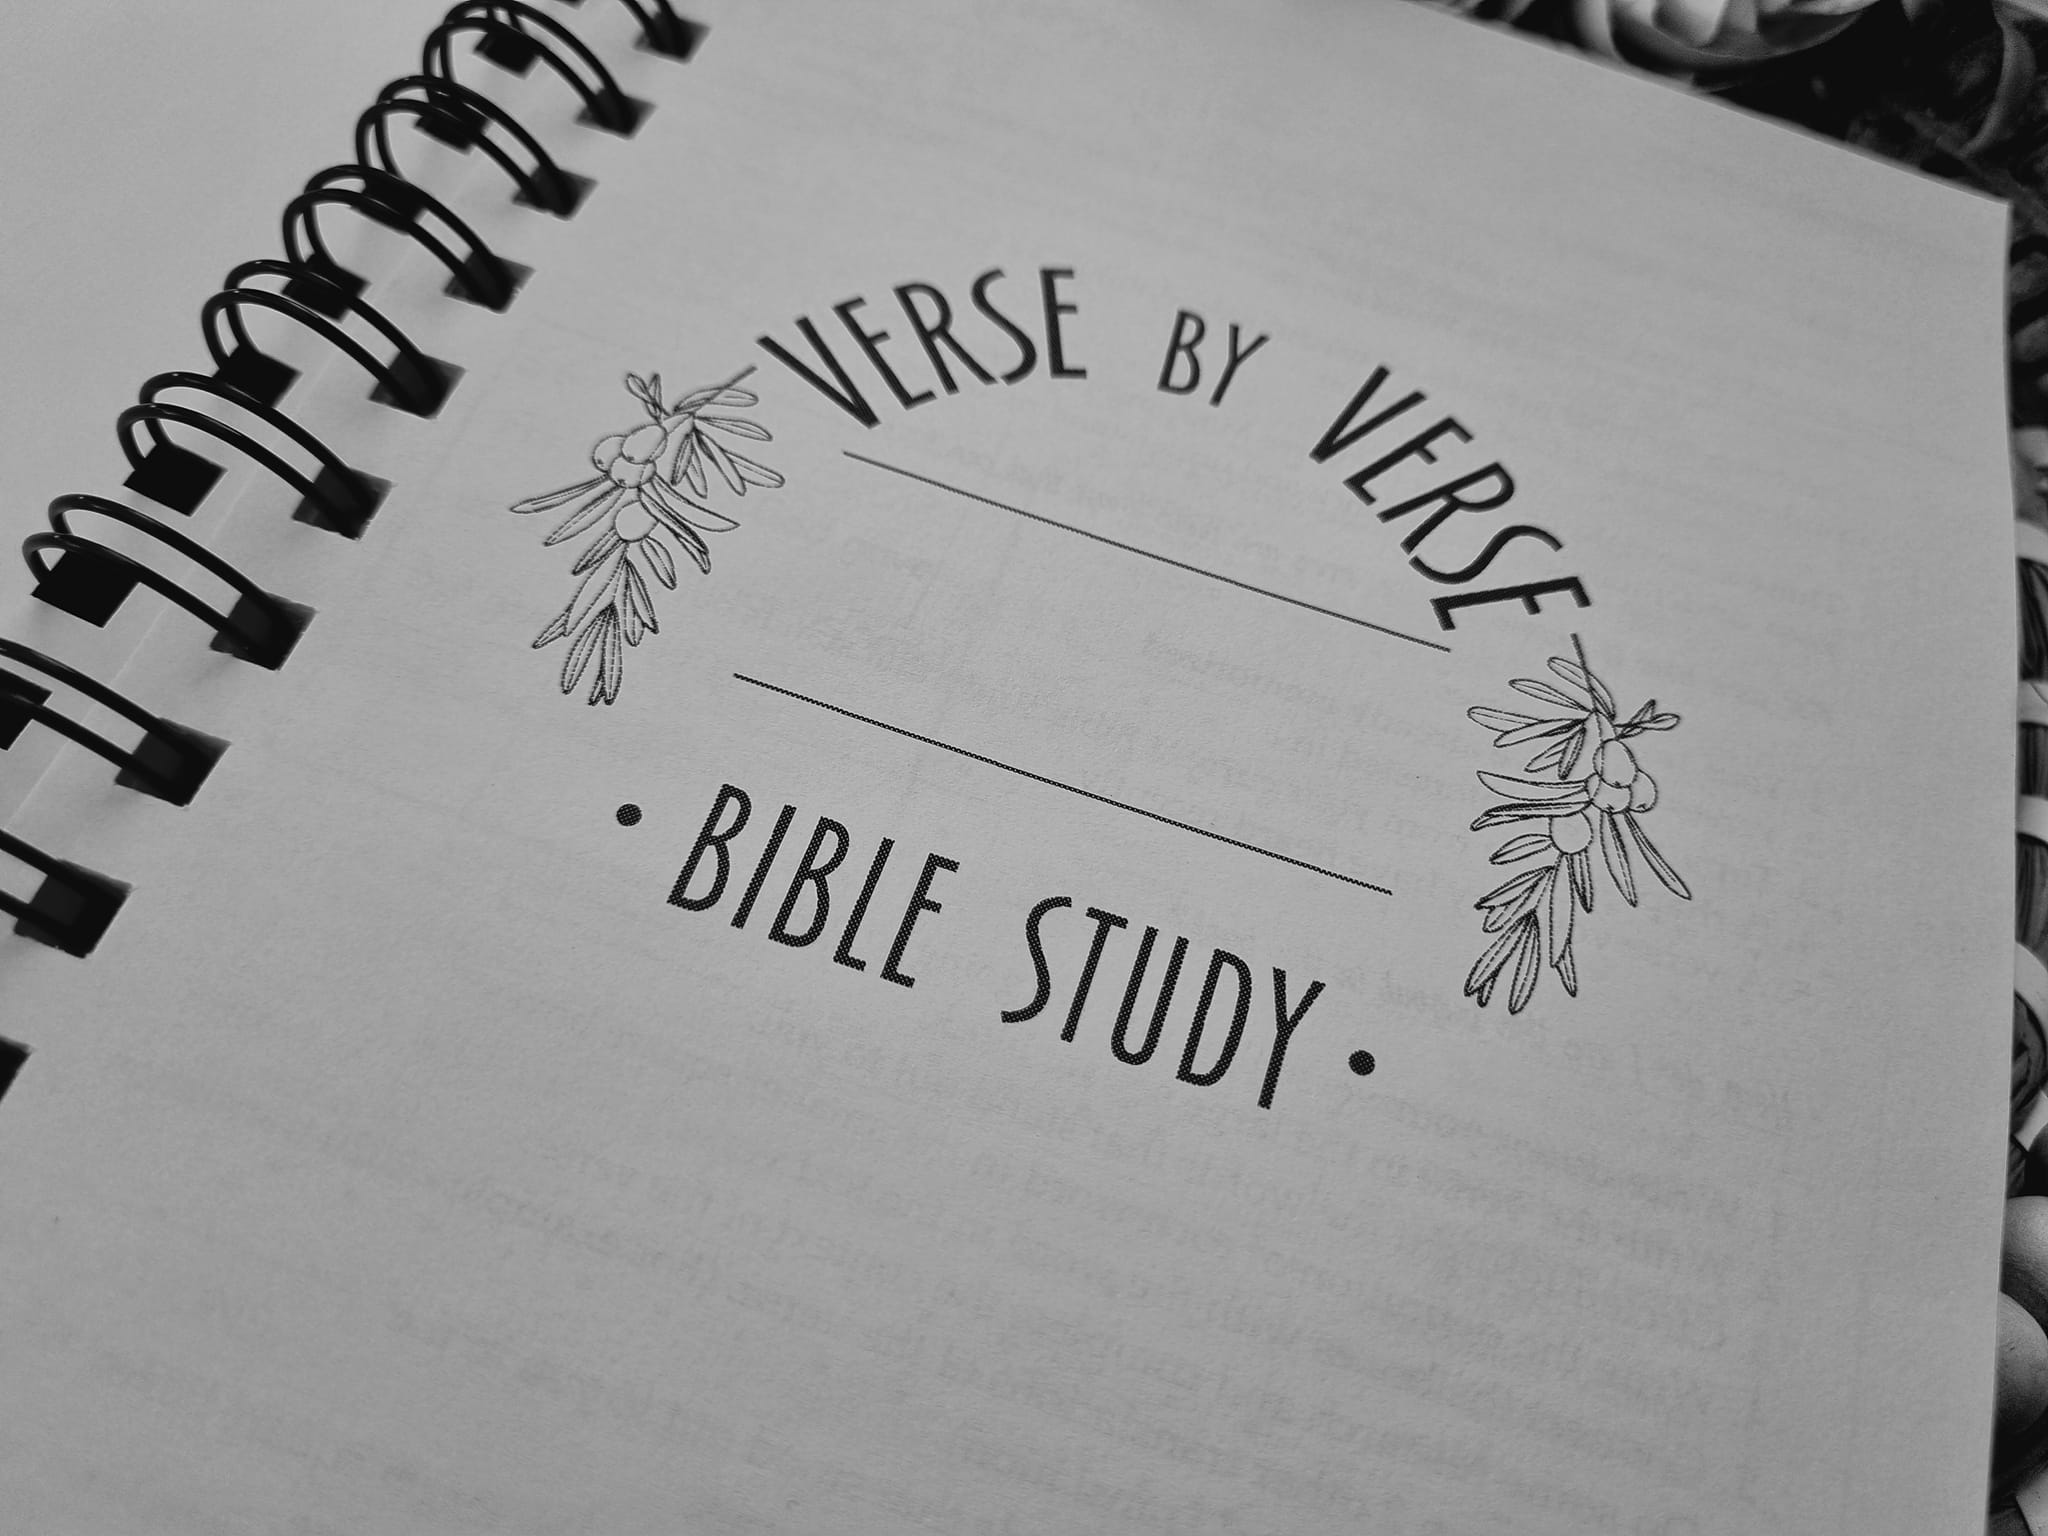 VERSE BY VERSE
• BIBLE STUDY •